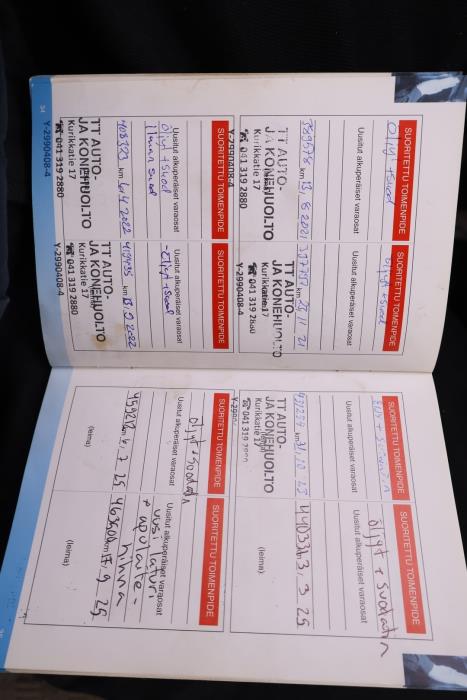 SUORITETTU TOIMENPIDE
Öljyt + Suod
Uusitut alkuperäiset varaosat
389578 km 13, 8 2021
TT AUTO-
JA KONEHUOLTO
Kurikkatie 17
☎ 041 319 2880
Y-2990408-4
SUORITETTU TOIMENPIDE
öljyt + suod
Uusitut alkuperäiset varaosat
km 11 21
TT AUTO-
JA KONEHUOLTO
Kurikkatie 17
☎ 041 319 2880
Y-2990408-4
SUORITETTU TOIMENPIDE
Uusitut alkuperäiset varaosat
öljyt + suod
ilman suod
408323 km 6, 4 2022
TT AUTO-
JA KONEHUOLTO
Kurikkatie 17
☎ 041 319 2880
Y-2990408-4
SUORITETTU TOIMENPIDE
Uusitut alkuperäiset varaosat
-Öljyt + suod
419435 km 13, 9 2022
TT AUTO-
JA KONEHUOLTO
Kurikkatie 17
☎ 041 319 2880
Y-2990408-4
34
SUORITETTU TOIMENPIDE
Uusitut alkuperäiset varaosat
431229 km 31, 10
TT AUTO-
JA KONEHUOLTO
(leima)
Kurikkatie 17
☎ 041 319
SUORITETTU TOIMENPIDE
öljyt + suodatin
Uusitut alkuperäiset varaosat
3, 3 25
(leima)
SUORITETTU TOIMENPIDE
öljyt + suodatin
Uusitut alkuperäiset varaosat
25
(leima)
SUORITETTU TOIMENPIDE
Uusitut alkuperäiset varaosat
uusi laturi
+ apulaite-
hihna
463606 km 17, 9 25
(leima)